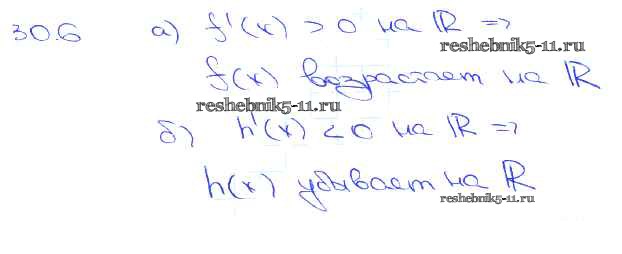 30.6 а) f'(x) > 0 на ℝ =>
reshebnik5-11.ru
f(x) возрастает на ℝ
reshebnik5-11.ru
б) h'(x) < 0 на ℝ =>
h(x) убывает на ℝ
reshebnik5-11.ru